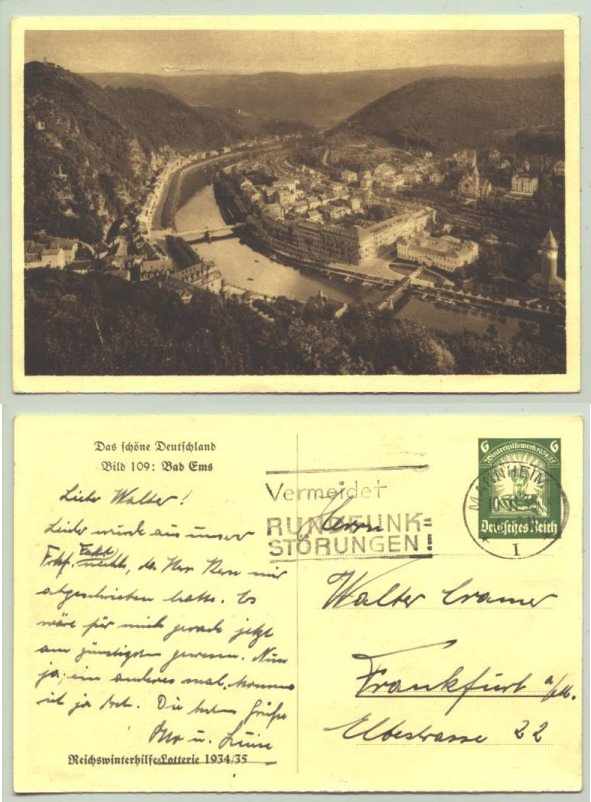 Das schöne Deutschland
Bild 109: Bad Ems
Lieber Walter!
Leider wurde aus unser
Fahrt nichts, da Herr Kern mir
abgeschrieben hatte. Es
wäre für mich gerade jetzt
am günstigsten gewesen. Nun
ja, ein anderes mal, komme
ich ja dort. Die besten Grüße
u. Luise
Reichswinterhilfe-Lotterie 1934/35
Vermeidet
RUNDFUNK-
STÖRUNGEN!
6 6
Winterhilfswerk
Deutsches Reich
MANNHEIM
1
Herrn
Walter Cramer
Frankfurt a/M.
Elbestrasse 22